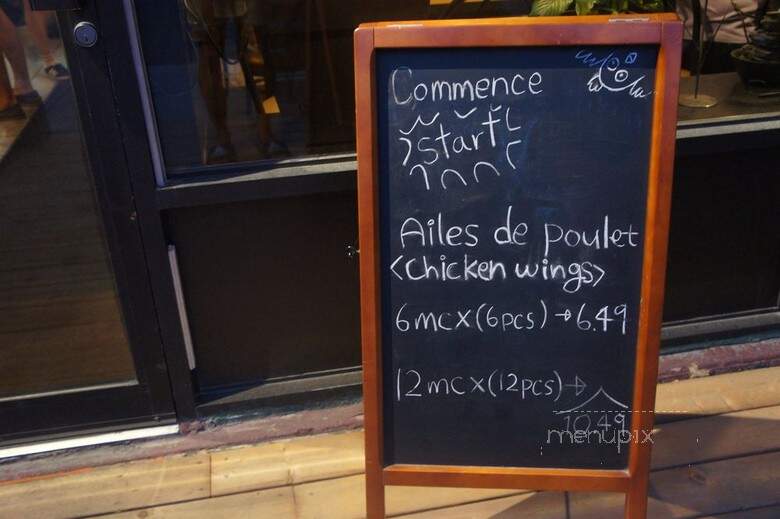 Commence
start
Ailes de poulet
<chicken wings>
6mcx(6pcs)→6.49
12mcx(12pcs)→
10.49
menupix